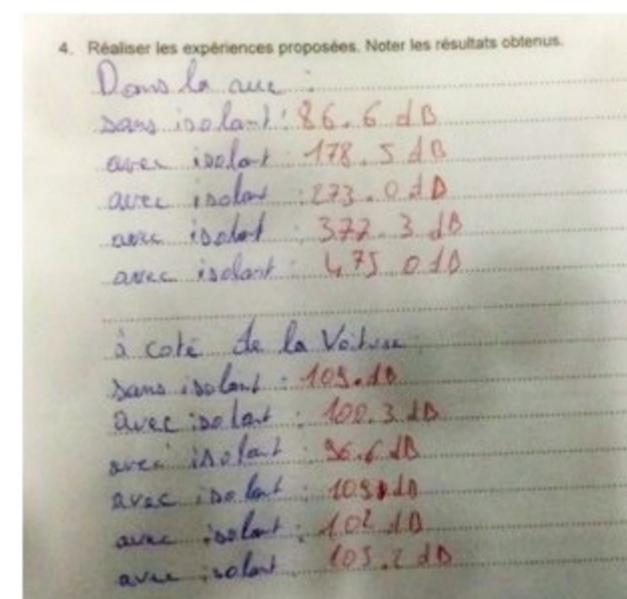 4. Réaliser les expériences proposées. Noter les résultats obtenus.
Dans la rue :
sans isolant : 86.6 dB
avec isolant : 178.5 dB
avec isolant : 273.0 dB
avec isolant : 377.3 dB
avec isolant : 475.0 dB
à coté de la Voiture :
sans isolant : dB
avec isolant : 100.3 dB
avec isolant : 96.6 dB
avec isolant : dB
avec isolant : 102 dB
avec isolant : dB